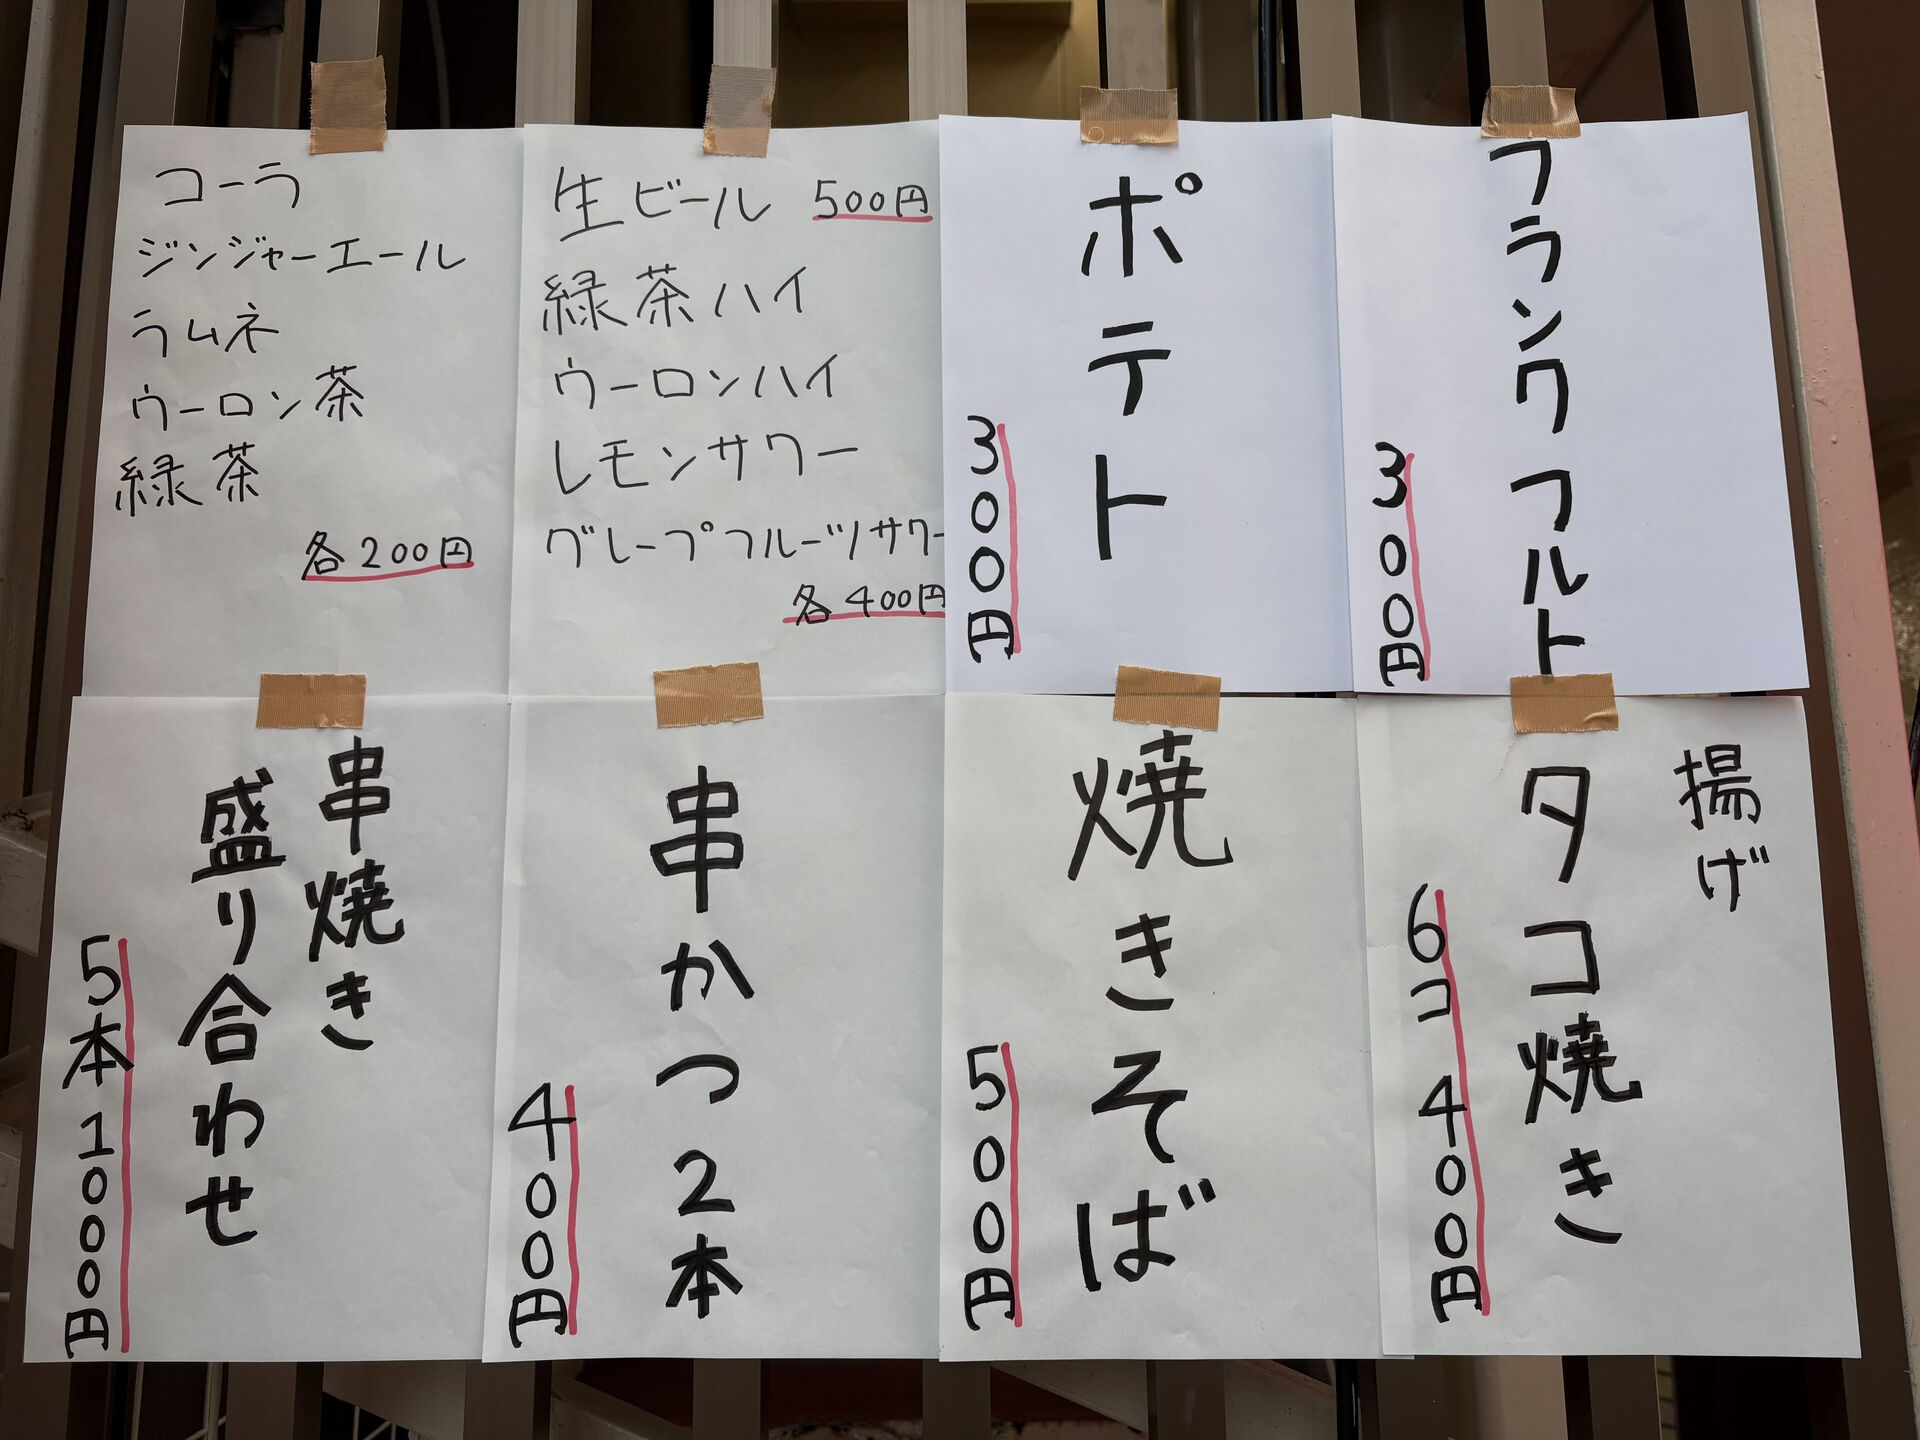 コーラ
ジンジャーエール
ラムネ
ウーロン茶
緑茶
各200円
生ビール 500円
緑茶ハイ
ウーロンハイ
レモンサワー
グレープフルーツサワー
各400円
ポテト
300円
フランクフルト
300円
串焼き
盛り合わせ
5本1000円
串かつ2本
400円
焼きそば
500円
揚げ
タコ焼き
6コ400円